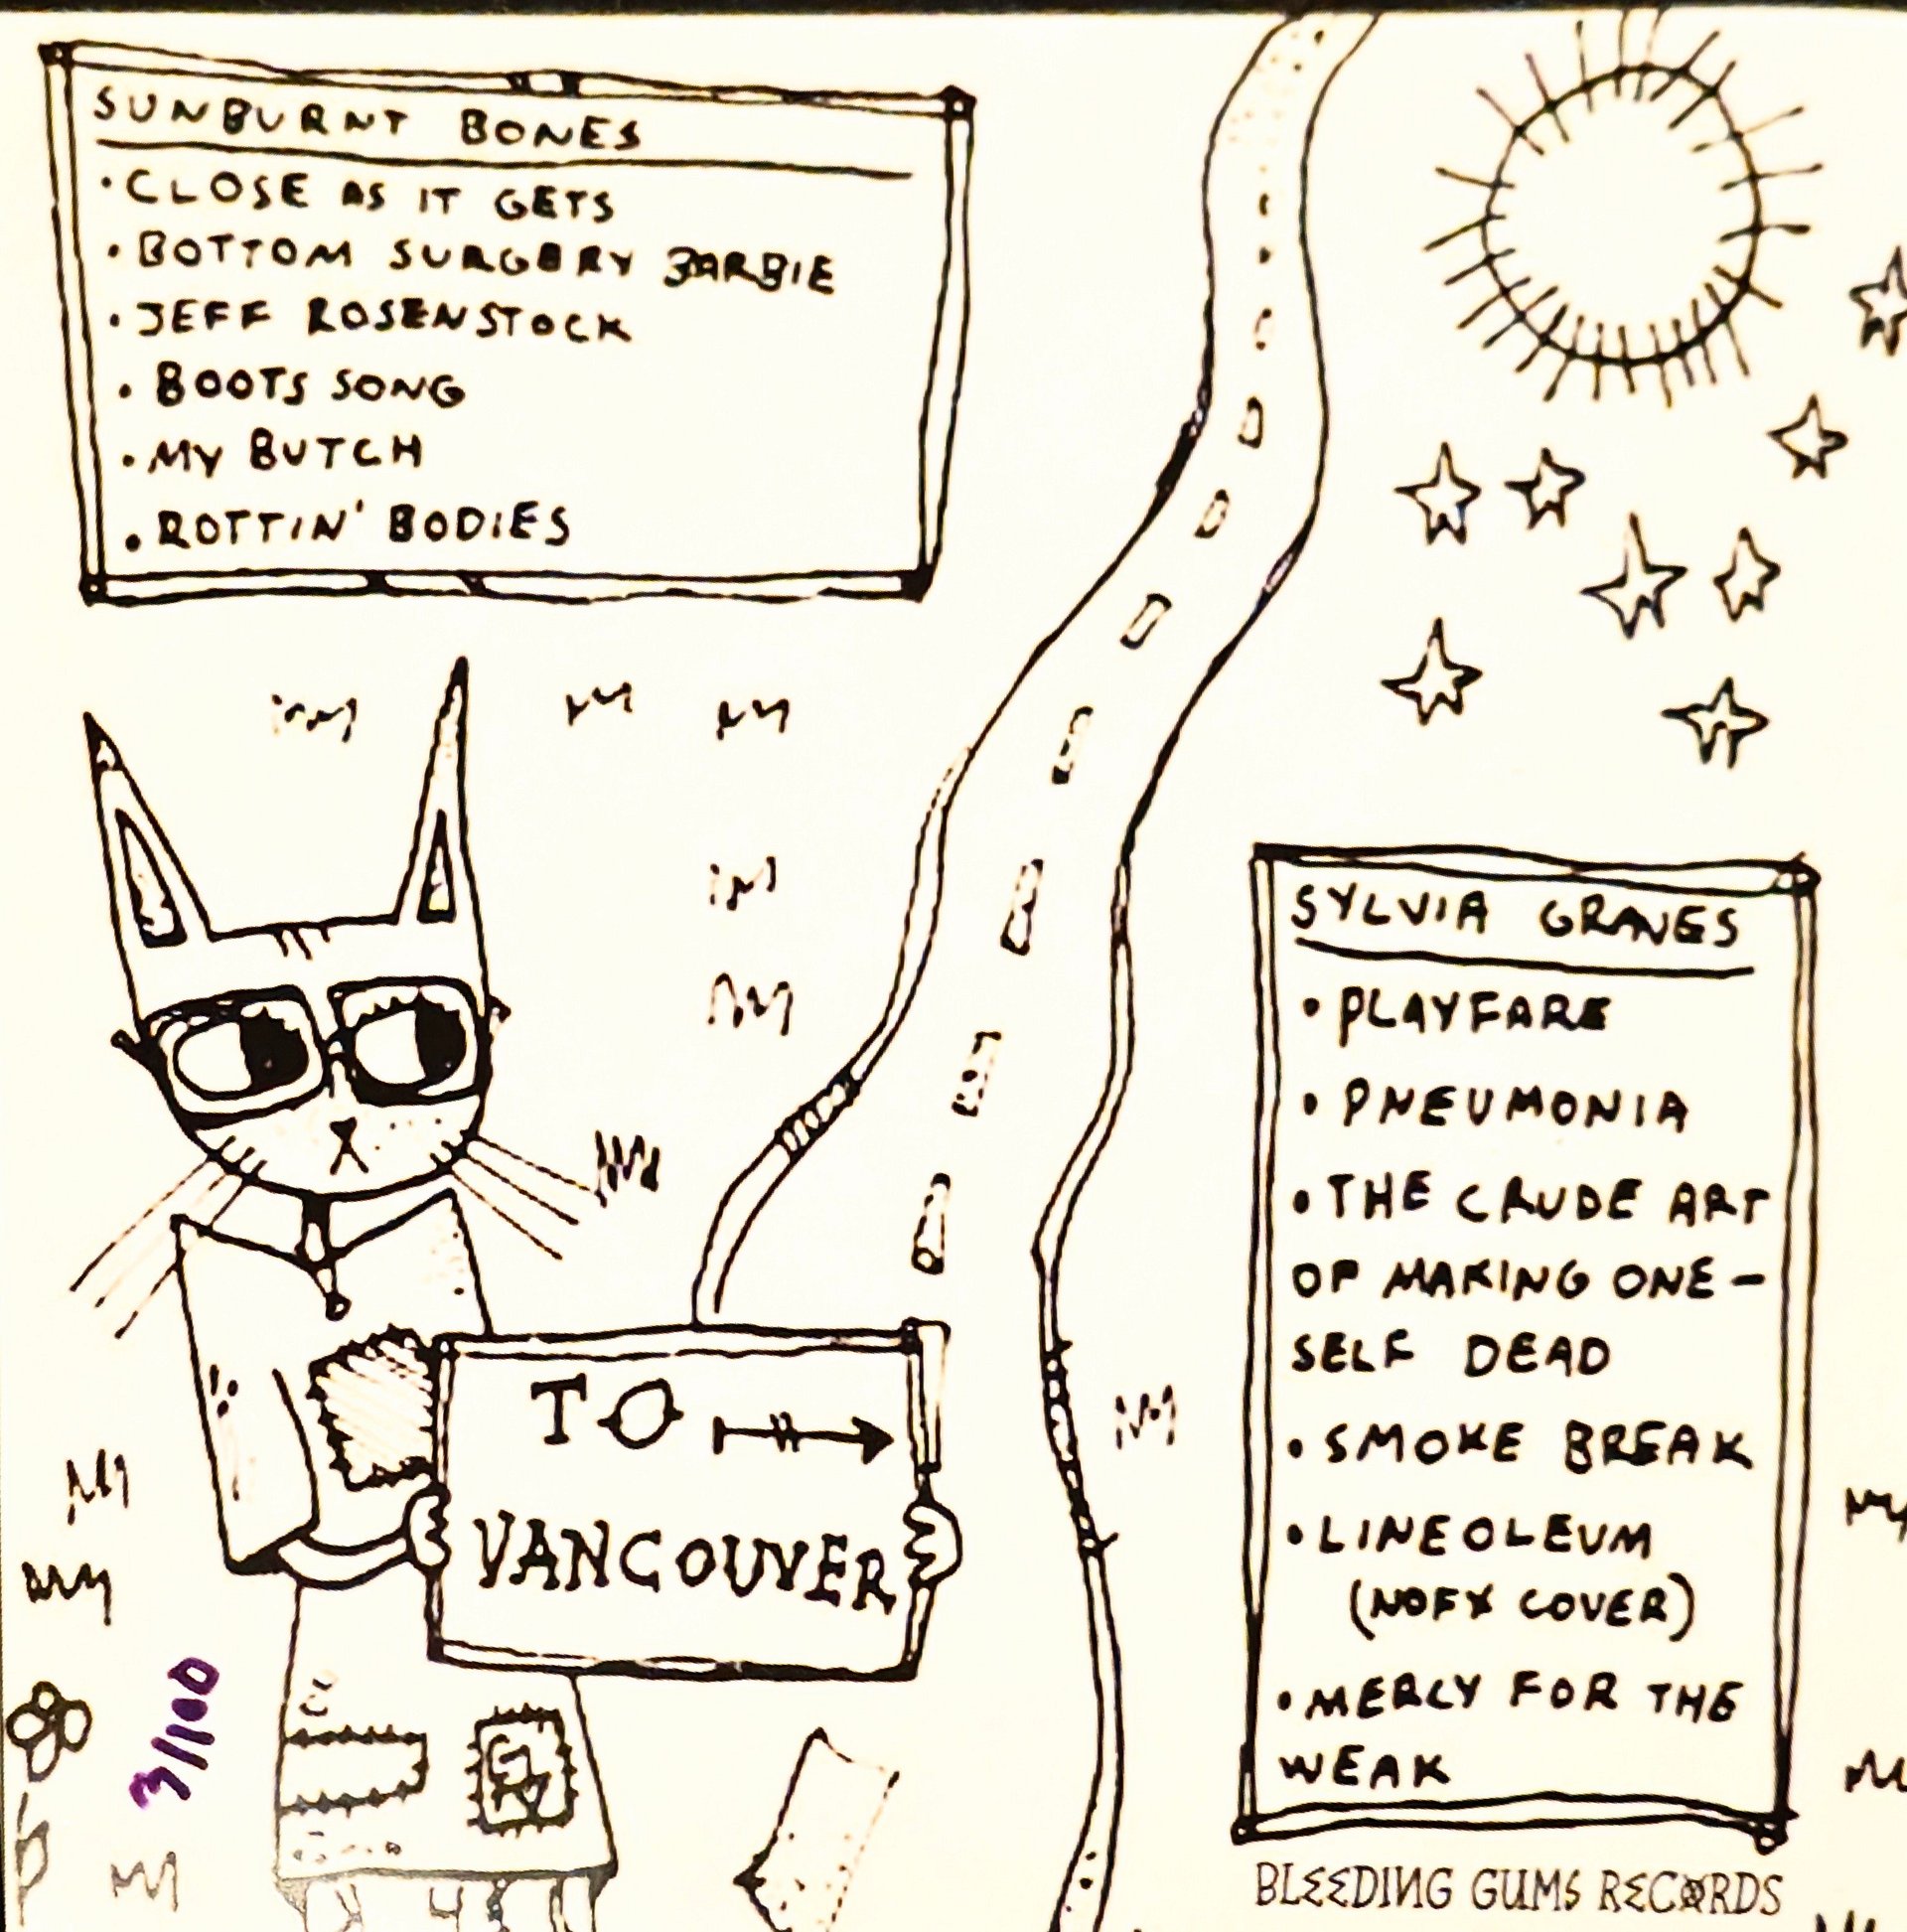 SUNBURNT BONES
• CLOSE AS IT GETS
• BOTTOM SURGERY BARBIE
• JEFF ROSENSTOCK
• BOOTS SONG
• MY BUTCH
• ROTTIN' BODIES
TO
VANCOUVER
3/100
SYLVIA GRAVES
• PLAYFARE
• PNEUMONIA
• THE CRUDE ART
OF MAKING ONE-
SELF DEAD
• SMOKE BREAK
• LINEOLEUM
(NOFX COVER)
• MERCY FOR THE
WEAK
BLEEDING GUMS RECORDS